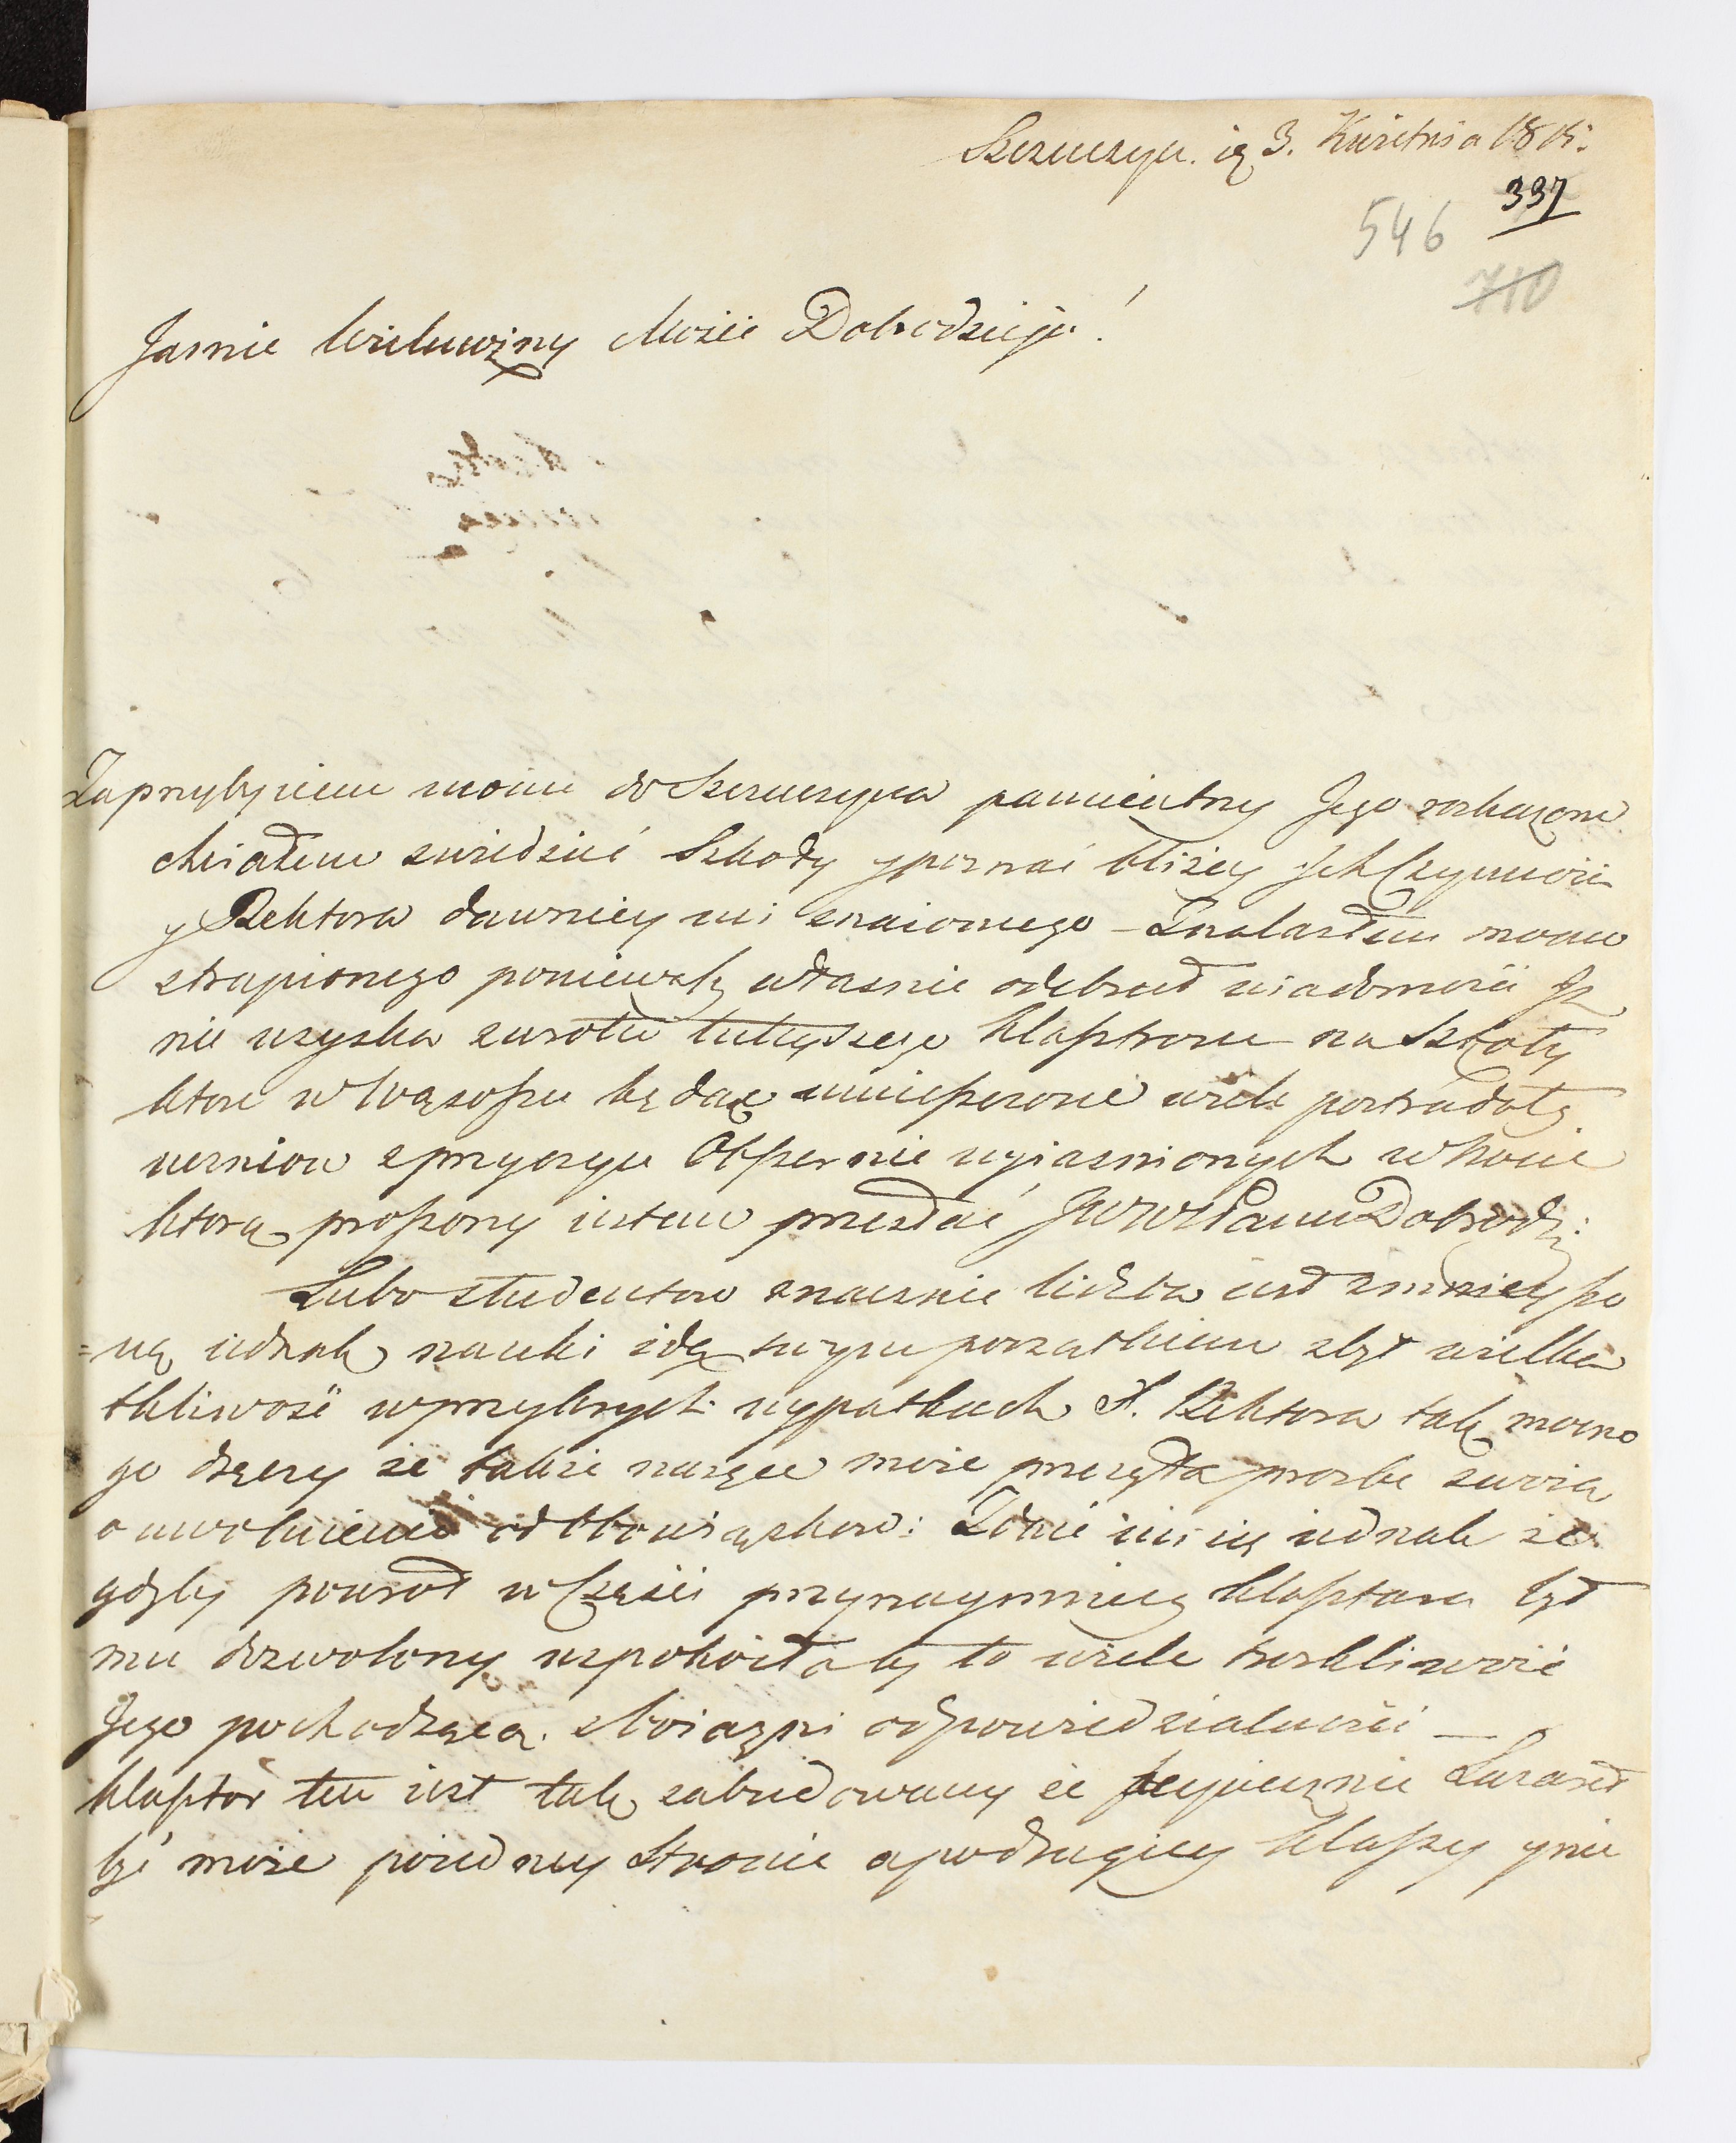 Szczuczyn. ię 3. Kwietnia 1815.
397
546
710
Jasnie Wielmożny Mości Dobrodzieju!
Zaprzybyciem moim do Szczuczyna pamientny Jego roskazow
chciałem zwiedzić Szkoły y poznać bliżey Ich
y Rektora dawniey mi znaiomego – Znalazłem mocno
strapionego poniewasz własnie odebrał wiadomość Iż
nie uzyska zwrotu tuteyszego klasztoru na Szkoły
ktore w Wąsoszu będąc umieszczone wiele postradały
uczniow z przyczyn Obszernie wyiasnionych w Nocie
ktorą proszony iestem przesłać JWWPanu Dobrodz:
Lubo studentow znacznie liczba iest zmnieyszo
=ną iednak nauki idą swym porządkiem zbyt wielka
tkliwość w przykrych wypatkach X. Rektora tak mocno
go dręczy że także naręce moie przesyła prozbe swoią
o uwolnienie od Obowiązkow: Zdaie mi się iednak że
gdyby powrot w Częsci przynaymniey klasztoru był
mu dozwolony uspokoiłaby to wiele troskliwość
Jego pochodzącą z boiazni odpowiedzialnosci –
klasztor ten iest tak zabudowany że bespiecznie Lazaret
być może po iedney Stronie a podrugiey klassy y nie